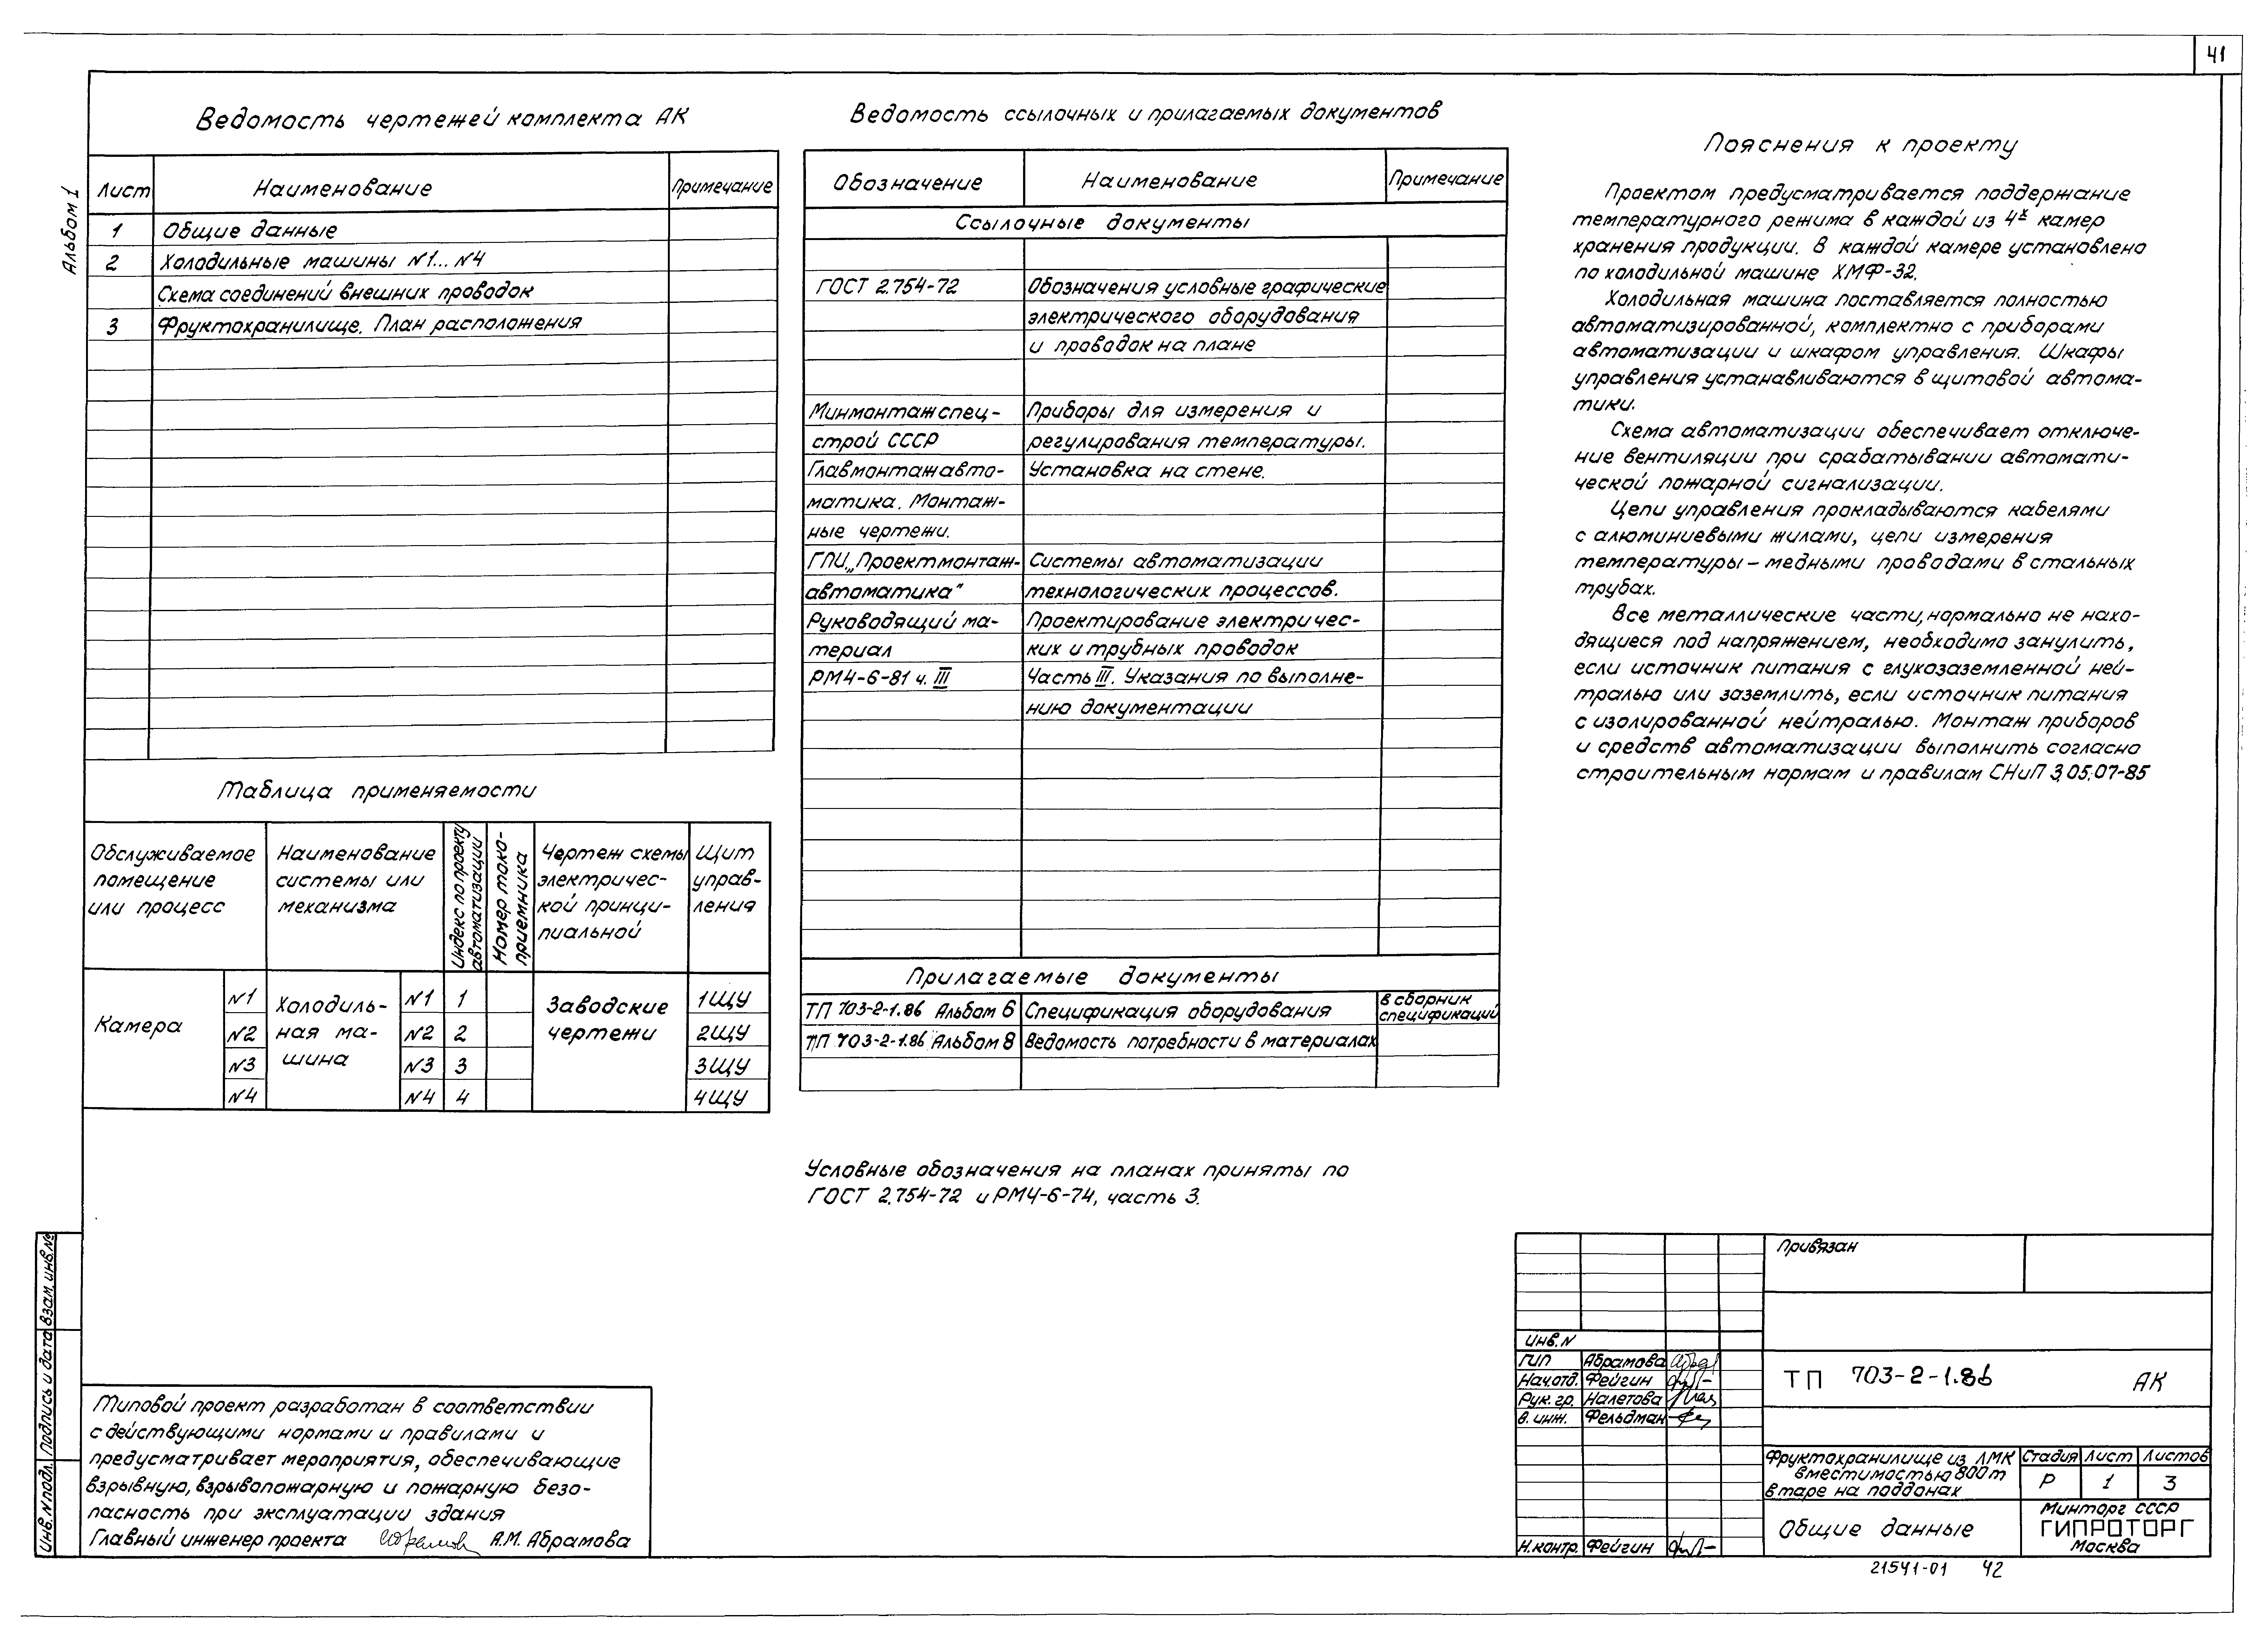 41
Альбом 1
Ведомость чертежей комплекта АК
Лист Наименование Примечание
1 Общие данные
2 Холодильные машины N1...N4
Схема соединений внешних проводок
3 Фруктохранилище. План расположения
Таблица применяемости
Обслуживаемое помещение или процесс
Наименование системы или механизма
Индекс по проекту автоматизации
Номер токо-приемника
Чертеж схемы электричес-кой принци-пиальной
Щит управ-ления
Камера
Холодиль-ная ма-шина
Заводские чертежи
N1 N1 1 1ЩУ
N2 N2 2 2ЩУ
N3 N3 3 3ЩУ
N4 N4 4 4ЩУ
Ведомость ссылочных и прилагаемых документов
Обозначение Наименование Примечание
Ссылочные документы
ГОСТ 2.754-72 Обозначения условные графические
электрического оборудования
и проводок на плане
Минмонтажспец- Приборы для измерения и
строй СССР регулирования температуры.
Главмонтажавто- Установка на стене.
матика. Монтаж-
ные чертежи.
ГПИ „Проектмонтаж- Системы автоматизации
автоматика" технологических процессов.
Руководящий ма- Проектирование электричес-
териал ких и трубных проводок
РМ4-6-81 ч. III Часть III. Указания по выполне-
нию документации
Прилагаемые документы
ТП 703-2-1.86 Альбом 6 Спецификация оборудования в сборник спецификаций
ТП 703-2-1.86 Альбом 8 Ведомость потребности в материалах
Условные обозначения на планах приняты по
ГОСТ 2.754-72 и РМ4-6-74, часть 3.
Пояснения к проекту
Проектом предусматривается поддержание
температурного режима в каждой из 4х камер
хранения продукции. В каждой камере установлено
по холодильной машине ХМФ-32.
Холодильная машина поставляется полностью
автоматизированной, комплектно с приборами
автоматизации и шкафом управления. Шкафы
управления устанавливаются в щитовой автома-
тики.
Схема автоматизации обеспечивает отключе-
ние вентиляции при срабатывании автомати-
ческой пожарной сигнализации.
Цепи управления прокладываются кабелями
с алюминиевыми жилами, цепи измерения
температуры – медными проводами в стальных
трубах.
Все металлические части, нормально не нахо-
дящиеся под напряжением, необходимо занулить,
если источник питания с глухозаземленной ней-
тралью или заземлить, если источник питания
с изолированной нейтралью. Монтаж приборов
и средств автоматизации выполнить согласно
строительным нормам и правилам СНиП 3.05.07-85
Инв. N подл. Подпись и дата Взам. инв. №
Типовой проект разработан в соответствии
с действующими нормами и правилами и
предусматривает мероприятия, обеспечивающие
взрывную, взрывопожарную и пожарную безо-
пасность при эксплуатации здания
Главный инженер проекта А.М. Абрамова
Привязан
Инв. N
ГИП Абрамова
Нач.отд. Фейгин
Рук. гр. Налетова
В. инж. Фельдман
Н.контр. Фейгин
ТП 703-2-1.86 АК
Фруктохранилище из ЛМК
вместимостью 800т
в таре на поддонах
Стадия Лист Листов
Р 1 3
Общие данные
Минторг СССР
ГИПРОТОРГ
Москва
21541-01 42